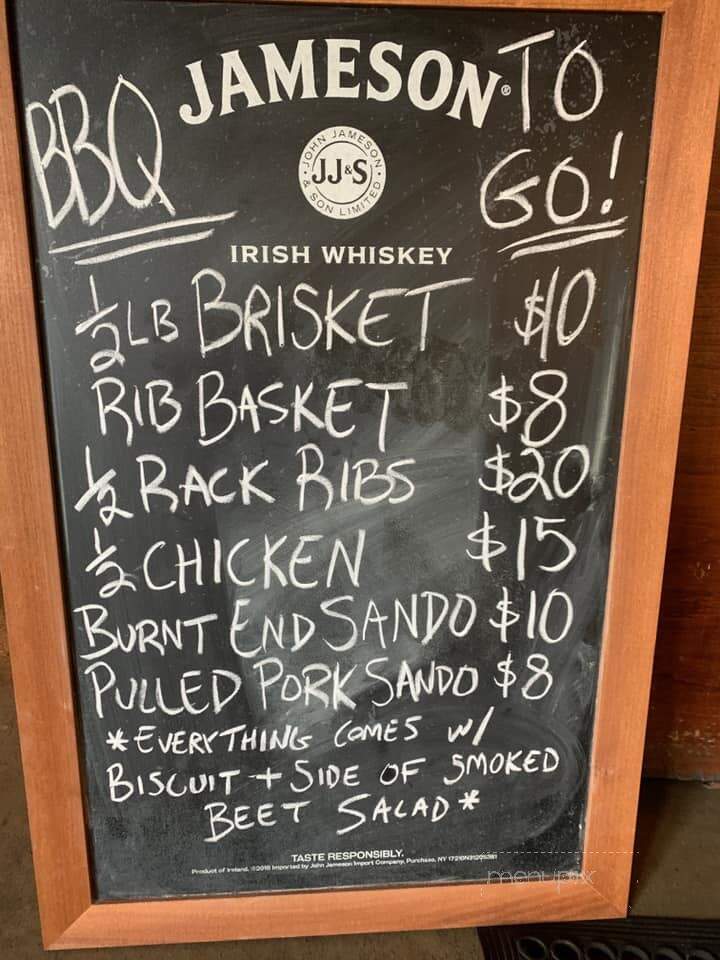 BBQ JAMESON® TO GO!
JOHN JAMESON & SON LIMITED
JJ&S
IRISH WHISKEY
½ LB BRISKET $10
RIB BASKET $8
½ RACK RIBS $20
½ CHICKEN $15
BURNT END SANDO $10
PULLED PORK SANDO $8
*EVERYTHING COMES w/
BISCUIT + SIDE OF SMOKED
BEET SALAD*
TASTE RESPONSIBLY.
Product of Ireland. ©2018 Imported by John Jameson Import Company, Purchase, NY
menupix